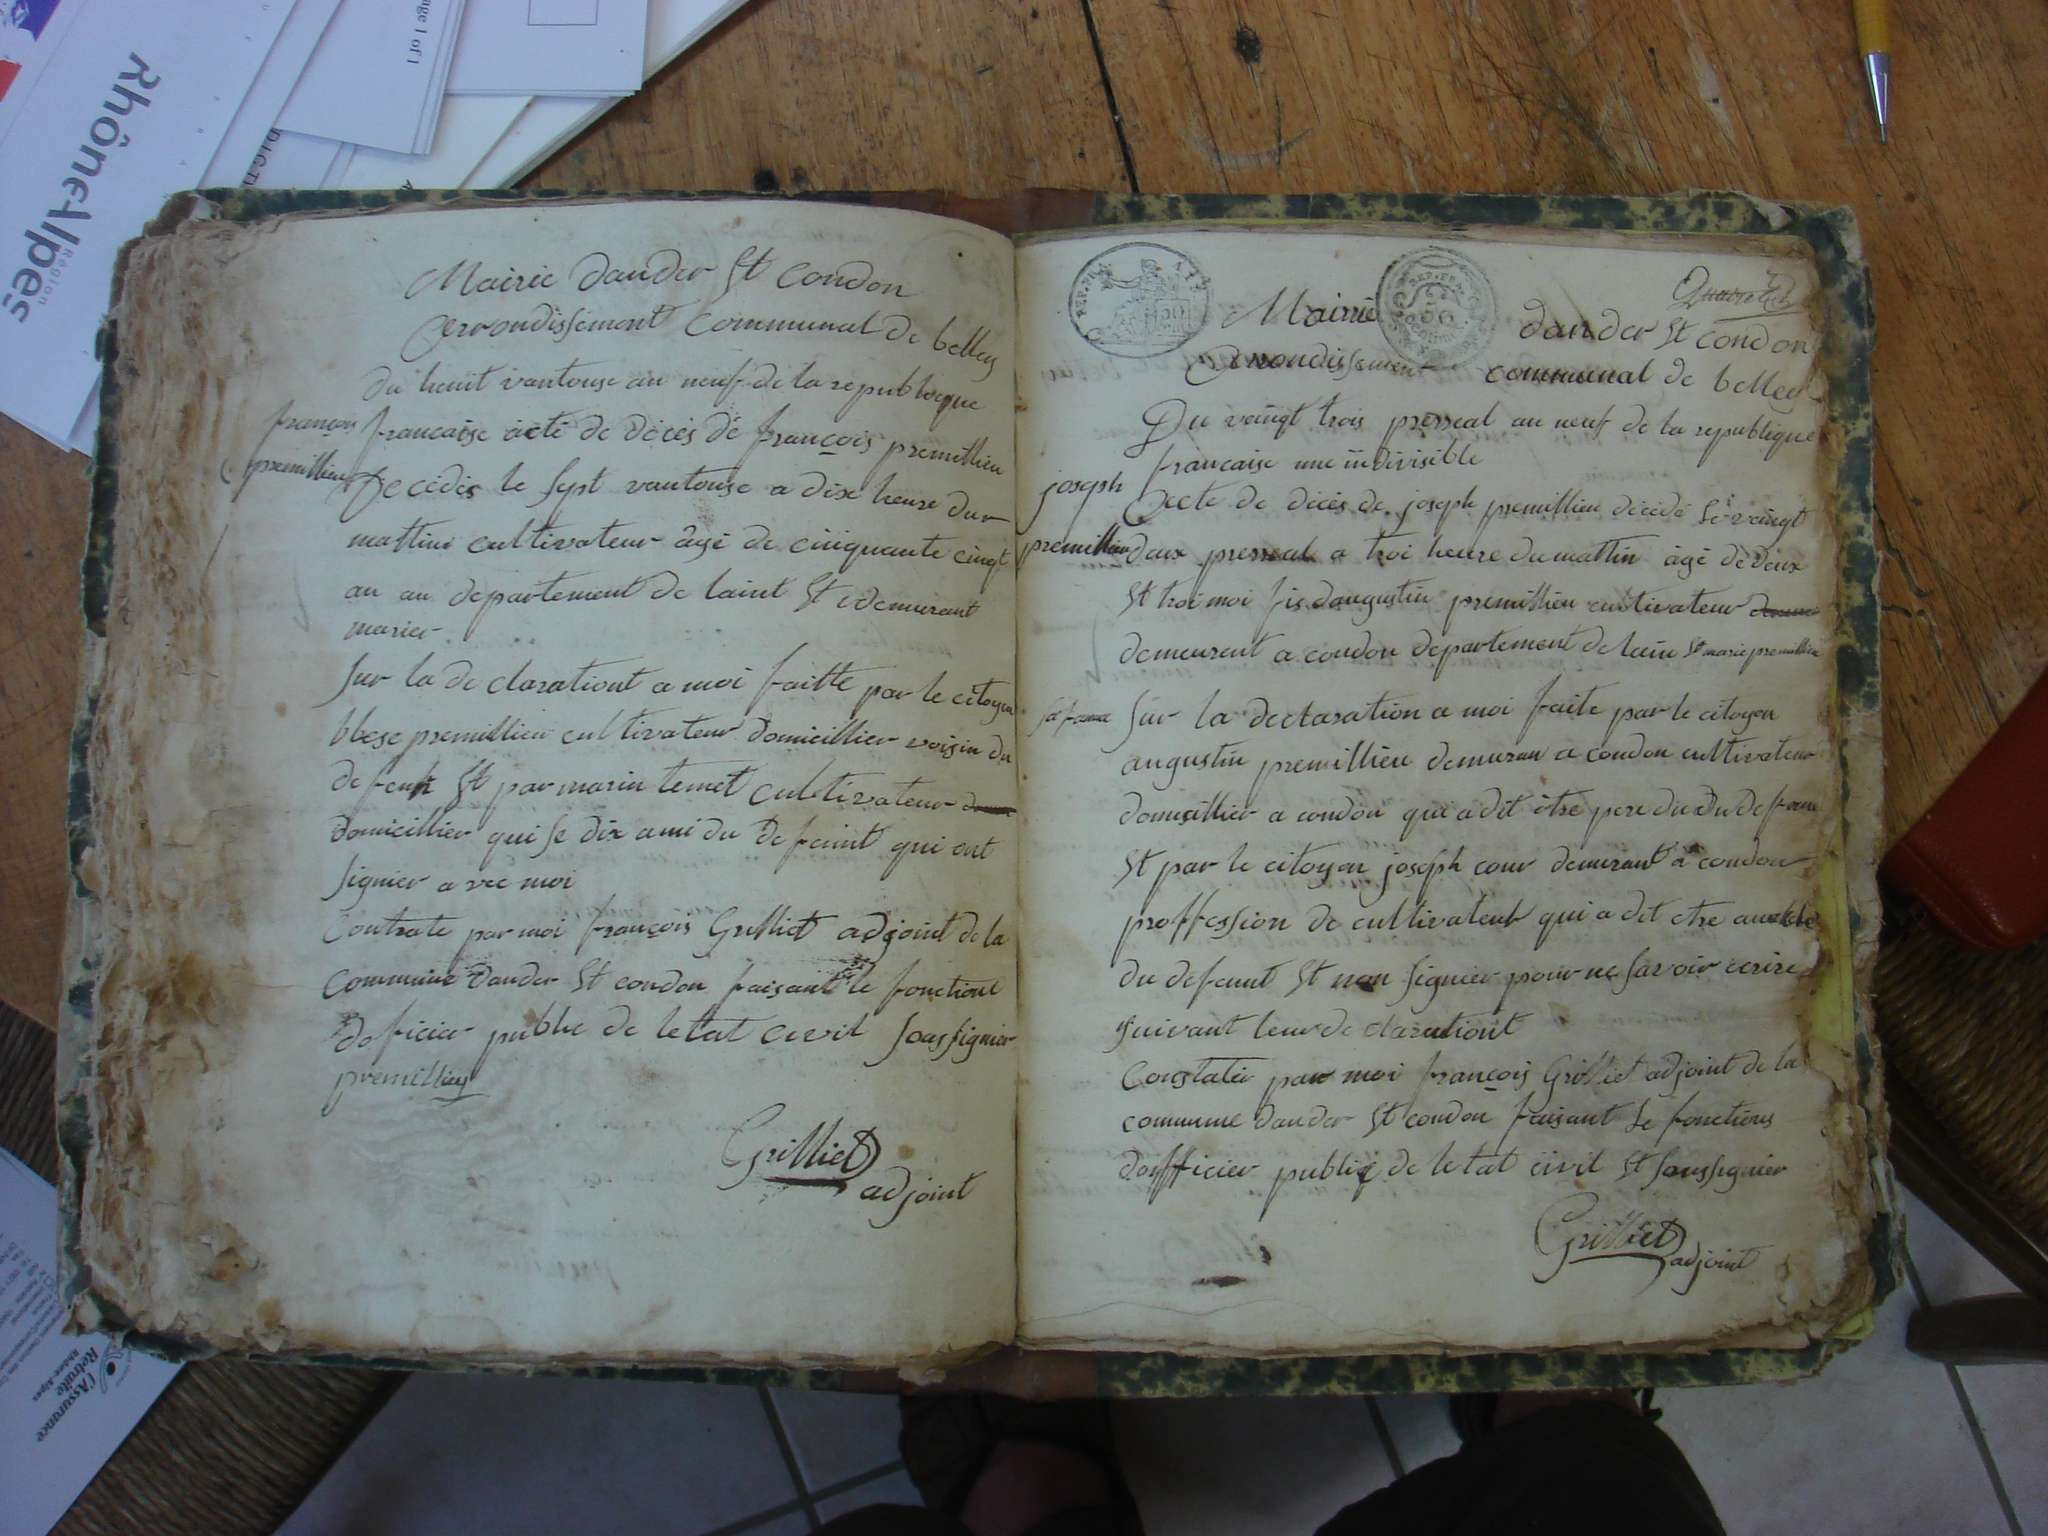 Rhône-Alpes
Région
age 1 of 1
Mairie dander St condon
arrondissement communal de belley
du heuit vantouse an neuf de la republieque
françois
francaise acte de décés de françois premillieu
premillieu
Decédés le sept vantouse a dix heure dur
mattin cultivateur âgé de cinquante cinqt
an au departement de laint St demurant
marier
sur la de clarationt a moi faitte par le citoyen
premillieu cultivateur domicillier voisin du
defeunt St par marin temet cultivateur
domicillier qui se dix ami du defeunt qui ont
signier avec moi
Contrate par moi françois Grilliet adjoint de la
commune dander St condon faisant le fonctiont
doficier publie de letat civil soussignier
premillieu
Grilliet
adjoint
REP. FRA
Mairie dander St condon
arrondissement communal de belley
Du veingt trois presreal an neuf de la republique
francaise une indivisible
joseph
acte de décés de joseph premillieu décédé le veingt
premillieu
deux presreal a troi heure du mattin âgé de deux
St troi moi fis daugustin premillieu cultivateur
demeurent a condon departement de lain St marie premillieu
sa fame
sur la declaration a moi faite par le citoyen
augustin premillieu demuran a condon cultivateur
domicillier a condon que a dit être pere du du
St par le citoyen joseph cour demurant a condon
proffession de cultivateur qui a dit etre
du defeunt St non signier pour ne savoir ecrire
suivant leur de clarationt
Constatér par moi françois Grilliet adjoint de la
commune dander St condon faisant le fonctions
dofficier publiq de letat civil St soussignier
Grilliet
adjoint
l'Assurance
Retraite
Rhône-Alpes